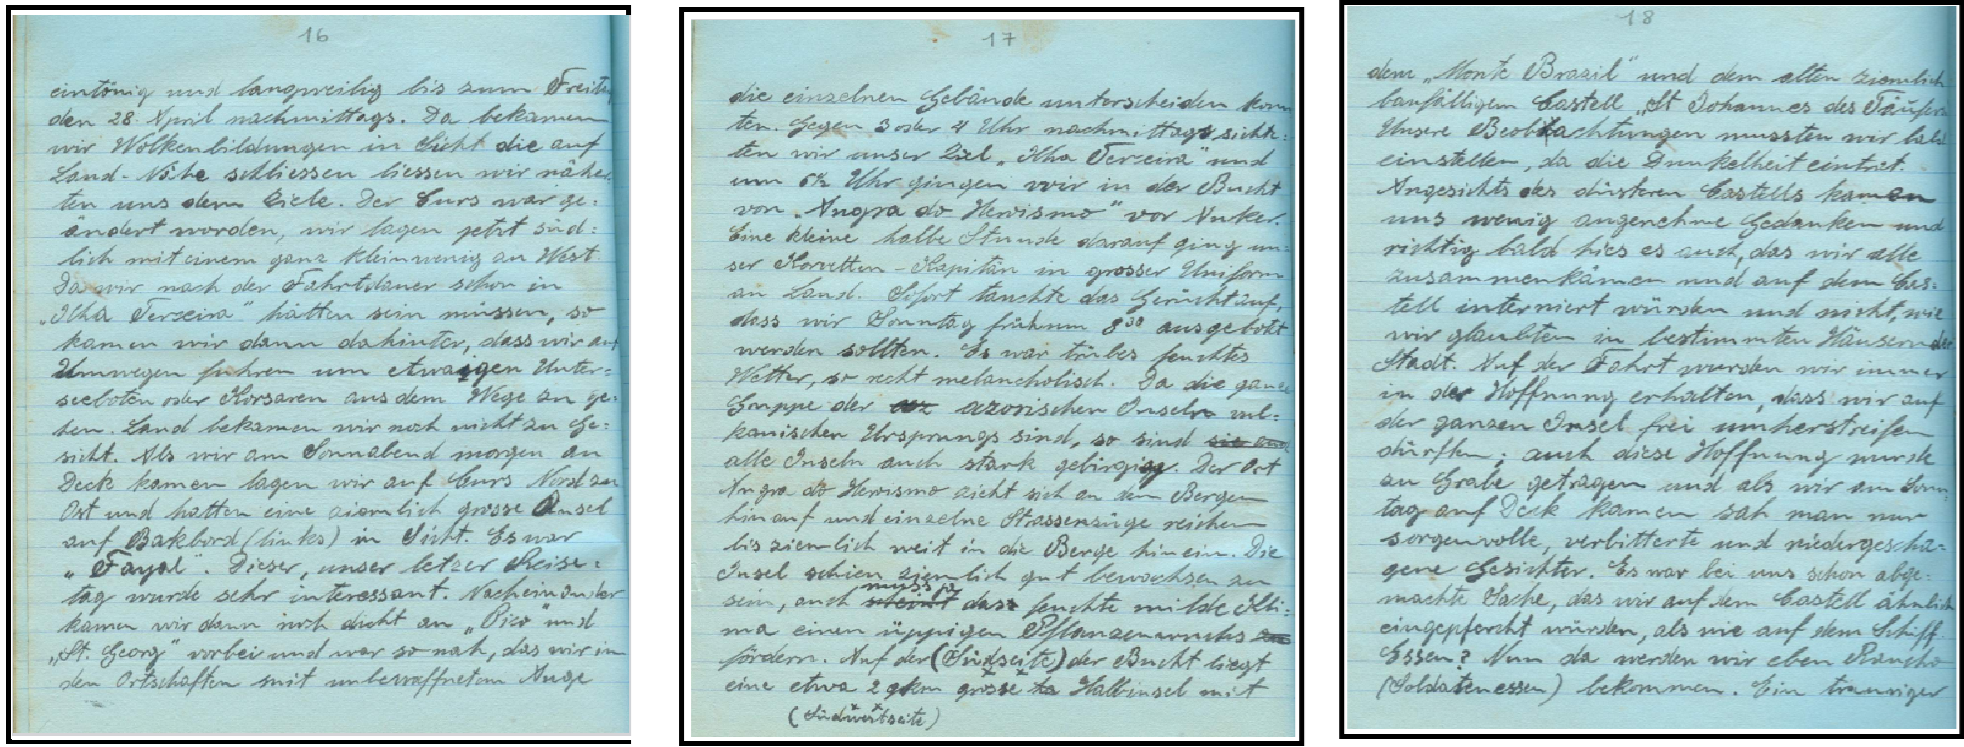 16
eintönig und langweilig bis zum Freitag
den 28 April nachmittags. Da bekamen
wir Wolkenbildungen in Sicht die auf
Land-Nähe schliessen liessen wir näher-
ten uns dem Ziele. Der Curs war ge-
ändert worden, wir lagen jetzt süd=
lich mit einem ganz klein wenig zu West
Da wir nach der Fahrtdauer schon in
„Ilha Terzeira" hätten sein müssen, so
kamen wir dann dahinter, dass wir auf
Umwegen fuhren um etwaigen Unter=
seeboten oder Korsaren aus dem Wege zu ge-
hen. Land bekamen wir noch nicht zu Ge-
sicht. Als wir am Sonnabend morgen an
Deck kamen lagen wir auf Curs Nord zu
Ost und hatten eine ziemlich grosse Insel
auf Bakbord (links) in Sicht. Es war
„Fayal". Dieser, unser letzer Reise=
tag wurde sehr interessant. Nacheinander
kamen wir dann noch dicht an „Pico" und
„St. Georg" vorbei und war so nah, das wir in
den Ortschaften mit unbewaffnetem Auge
17
die einzelnen Gebäude unterscheiden konn
ten. Gegen 3 oder 4 Uhr nachmittags sichte=
ten wir unser Ziel „Ilha Terzeira" und
um 6½ Uhr gingen wir in der Bucht
von „Angra do Heroismo" vor Anker.
Eine kleine halbe Stunde darauf ging un=
ser Korvetten-Kapitän in grosser Uniform
an Land. Sofort tauchte das Gerücht auf,
dass wir Sonntag früh um 8³⁰ ausgebotet
werden sollten. Es war trübes feuchtes
Wetter, so recht melancholisch. Da die ganze
Gruppe der az azorischen Inseln vul=
kanischen Ursprungs sind, so sind sie
alle Inseln auch stark gebirgig. Der Ort
Angra do Heroismo zieht sich an den Bergen
hinauf und einzelne Strassenzüge reichen
bis ziemlich weit in die Berge hinein. Die
Insel schien ziemlich gut bewachsen zu
muss ja
sein, auch scheint das feuchte milde Kli=
ma einen üppigen Pflanzenwuchs
fördern. Auf der (Südseite) der Bucht liegt
eine etwa 2 qkm grosse Halbinsel mit
(Südwestseite)
18
dem „Monte Brazil" und dem alten ziemlich
baufälligem Castell „St Johannes des Täufers
Unsere Beobachtungen mussten wir bald
einstellen, da die Dunkelheit eintret.
Angesichts des düsteren Castells kamen
uns wenig angenehme Gedanken und
richtig bald hies es auch, das wir alle
zusammenkämen und auf dem Cas=
tell interniert würden und nicht, wie
wir glaubten in bestimmten Häusern der
Stadt. Auf der Fahrt wurden wir immer
in der Hoffnung erhalten, dass wir auf
der ganzen Insel frei umherstreifen
dürften; auch diese Hoffnung wurde
zu Grabe getragen und als wir am Sonn
tag auf Deck kamen sah man nur
sorgenvolle, verbitterte und niedergescha-
gene Gesichter. Es war bei uns schon abge-
machte Sache, das wir auf dem Castell ähnlich
eingepfercht würden, als wie auf dem Schiff
Essen? Nun da werden wir eben Rancho
(Soldatenessen) bekommen. Ein trauriger